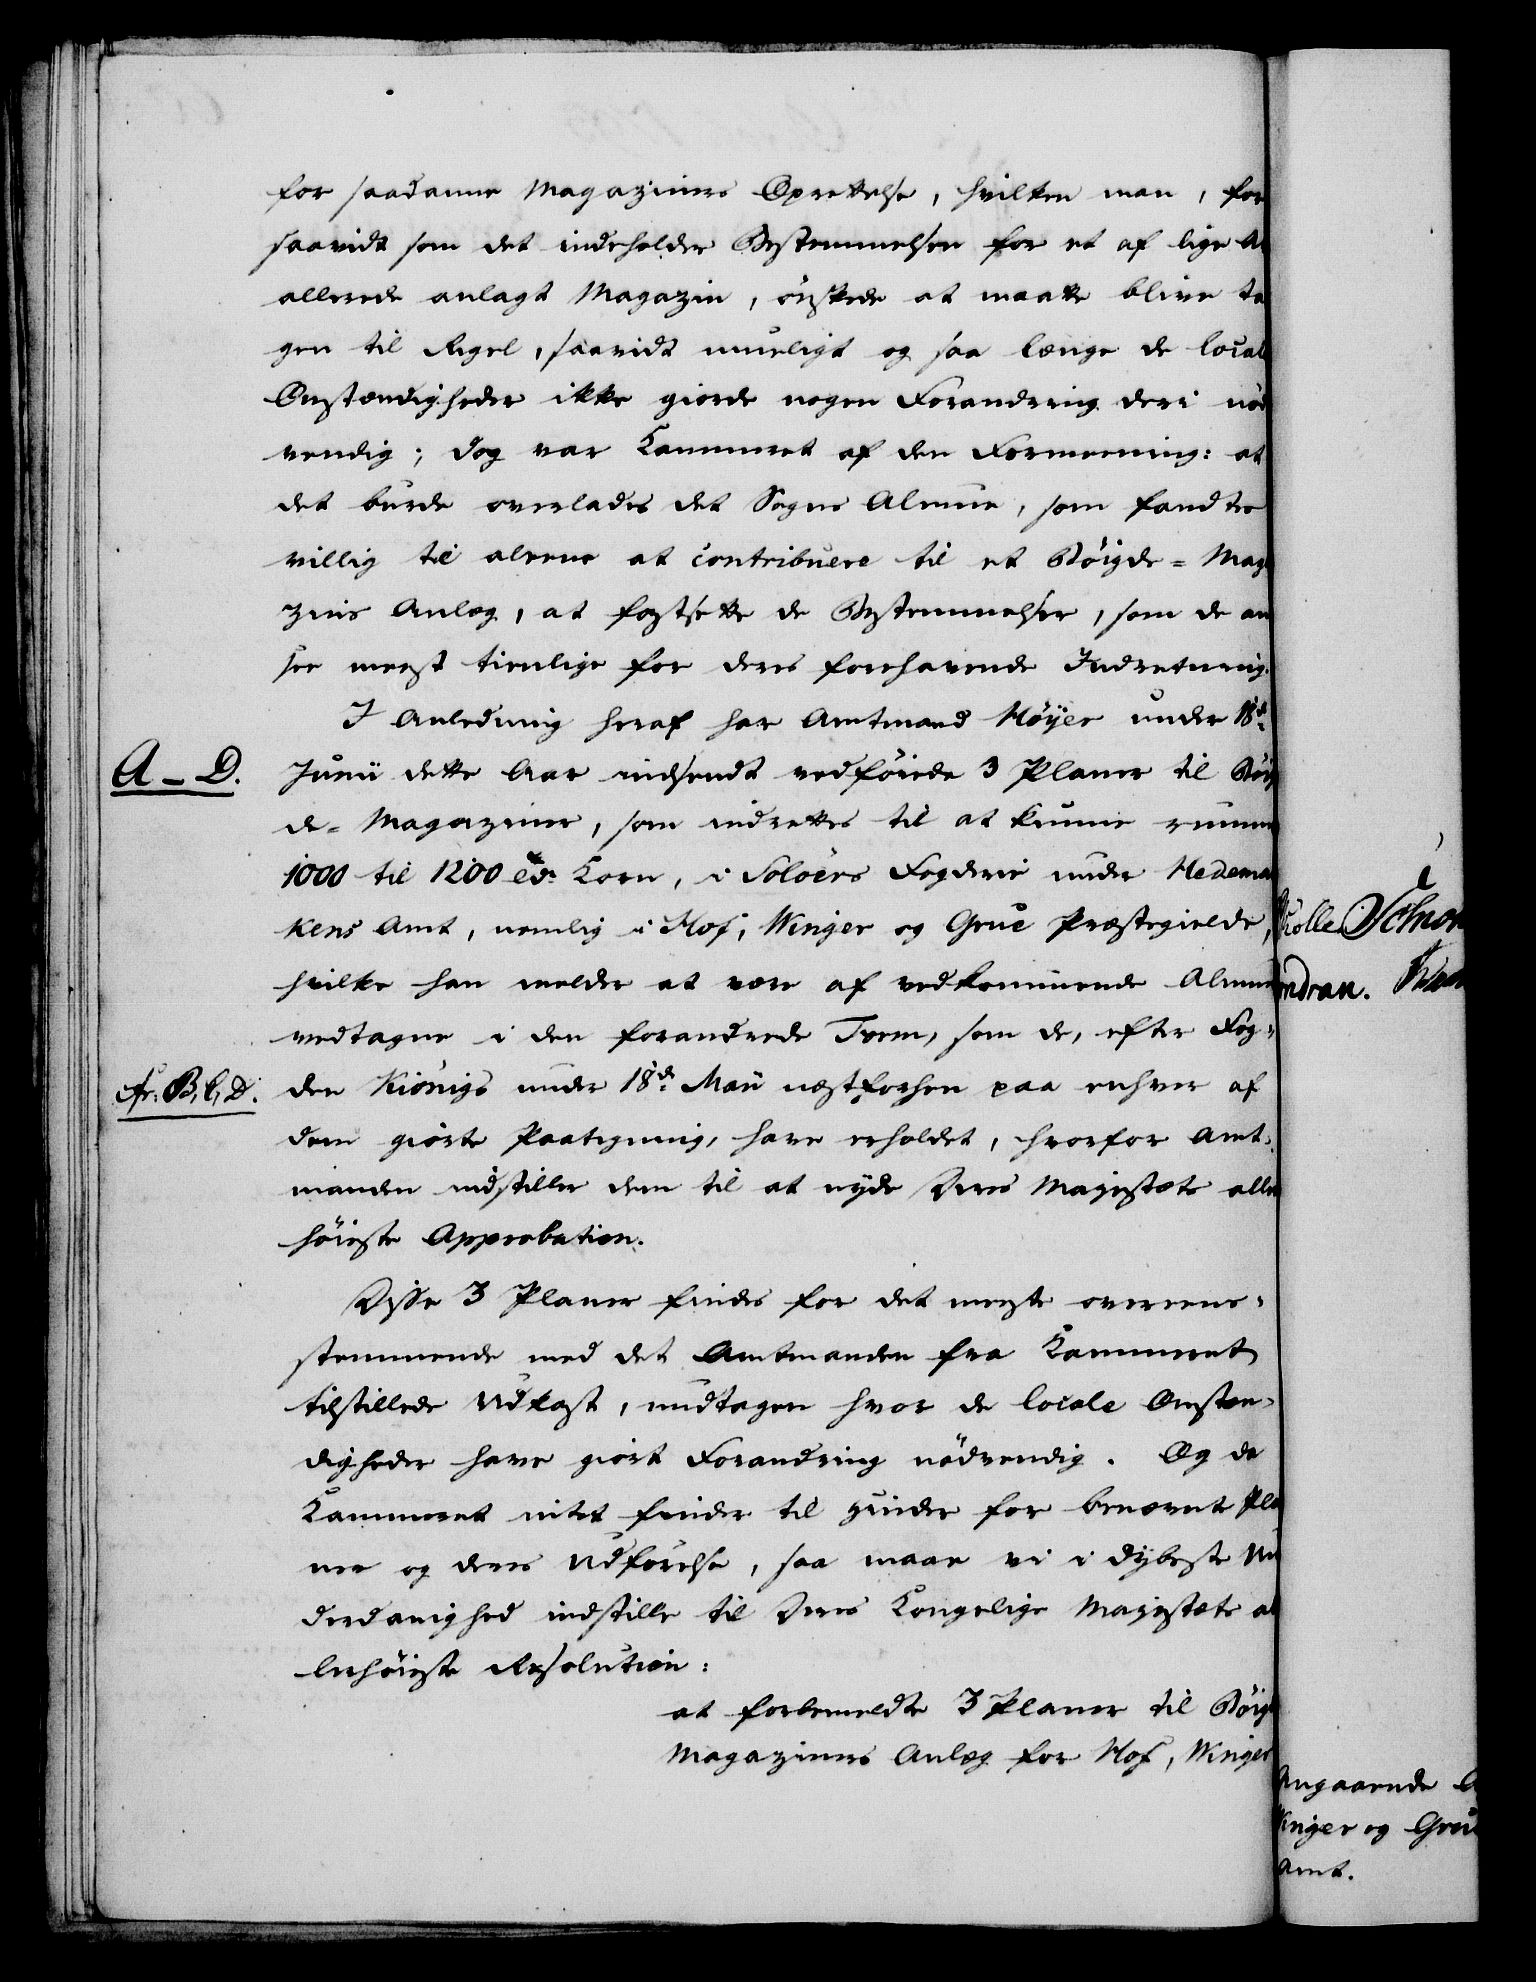 for saadanne Magaziners Oprettelse, hvilken man, for
saavidt som det indeholder Bestemmelsen for et af lige A
allerede anlagt Magazin, ønskede at maatte blive ta
gen til Regel, saavidt mueligt og saa længe de local
Omstændigheder ikke giorde nogen Forandring deri nød
vendig; dog var Kammeret af den Formeening: at
det burde overlades det Sogns Almue, som fandtes
villig til alene at contribuere til et Böigde-Maga
zins Anlæg, at fastsætte de Bestemmelser, som de an
see meest tienlige for deres forehavende Indretning.
I Anledning heraf har Amtmand Höyer under 18de
A-D.
Junii dette Aar indsendt vedföiede 3 Planer til Böig
de-Magaziner, som indrettes til at kunne rumme
1000 til 1200 Korn, i Soloers Fogderie under Hedemar
kens Amt, nemlig i Hof, Winger og Grue Præstegielde,
hvilke han melder at være af vedkommende Almue
vedtagne i den forandrede Form, som de, efter Fog-
Fr. B, C, D.
den Kiönigs under 18de Maii næstforhen paa enhver af
dem giorte Paategning, have erholdet, hvorfor Amt-
manden indstiller dem til at nyde Deres Majestæts aller
höieste Approbation.
Disse 3 Planer findes for det meste overeens-
stemmende med det Amtmanden fra Kammeret
tilstillede Udkast, undtagen hvor de locale Omstæn-
digheder have giort Forandring nödvendig. Og da
Kammeret intet finder til Hinder for benævnte Pla
ner og deres Udförelse, saa maae vi i dybeste Un
derdanighed indstille til Deres Kongelige Majestæts al
lerhöieste Resolution:
at forbemeldte 3 Planer til Böigd
Magaziners Anlæg for Hof, Winger
ndran.
Angaaende
Winger og Grue
Amt.